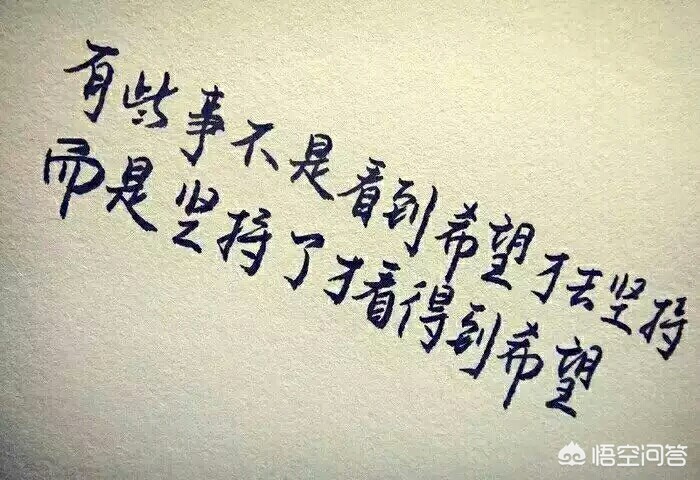 有些事不是看到希望才去坚持
而是坚持了才看得到希望
悟空问答